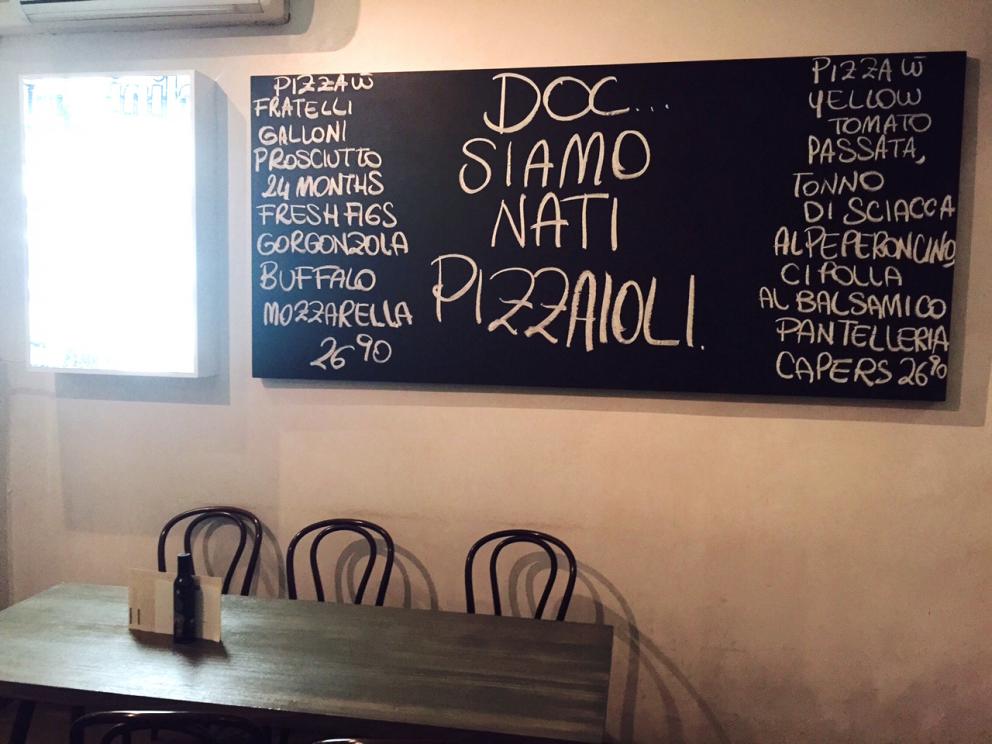 PIZZA W
FRATELLI
GALLONI
PROSCIUTTO
24 MONTHS
FRESH FIGS
GORGONZOLA
BUFFALO
MOZZARELLA
26⁹⁰
DOC...
SIAMO
NATI
PIZZAIOLI.
PIZZA W
YELLOW
TOMATO
PASSATA,
TONNO
DI SCIACCA
AL PEPERONCINO
CIPOLLA
AL BALSAMICO
PANTELLERIA
CAPERS 26⁹⁰